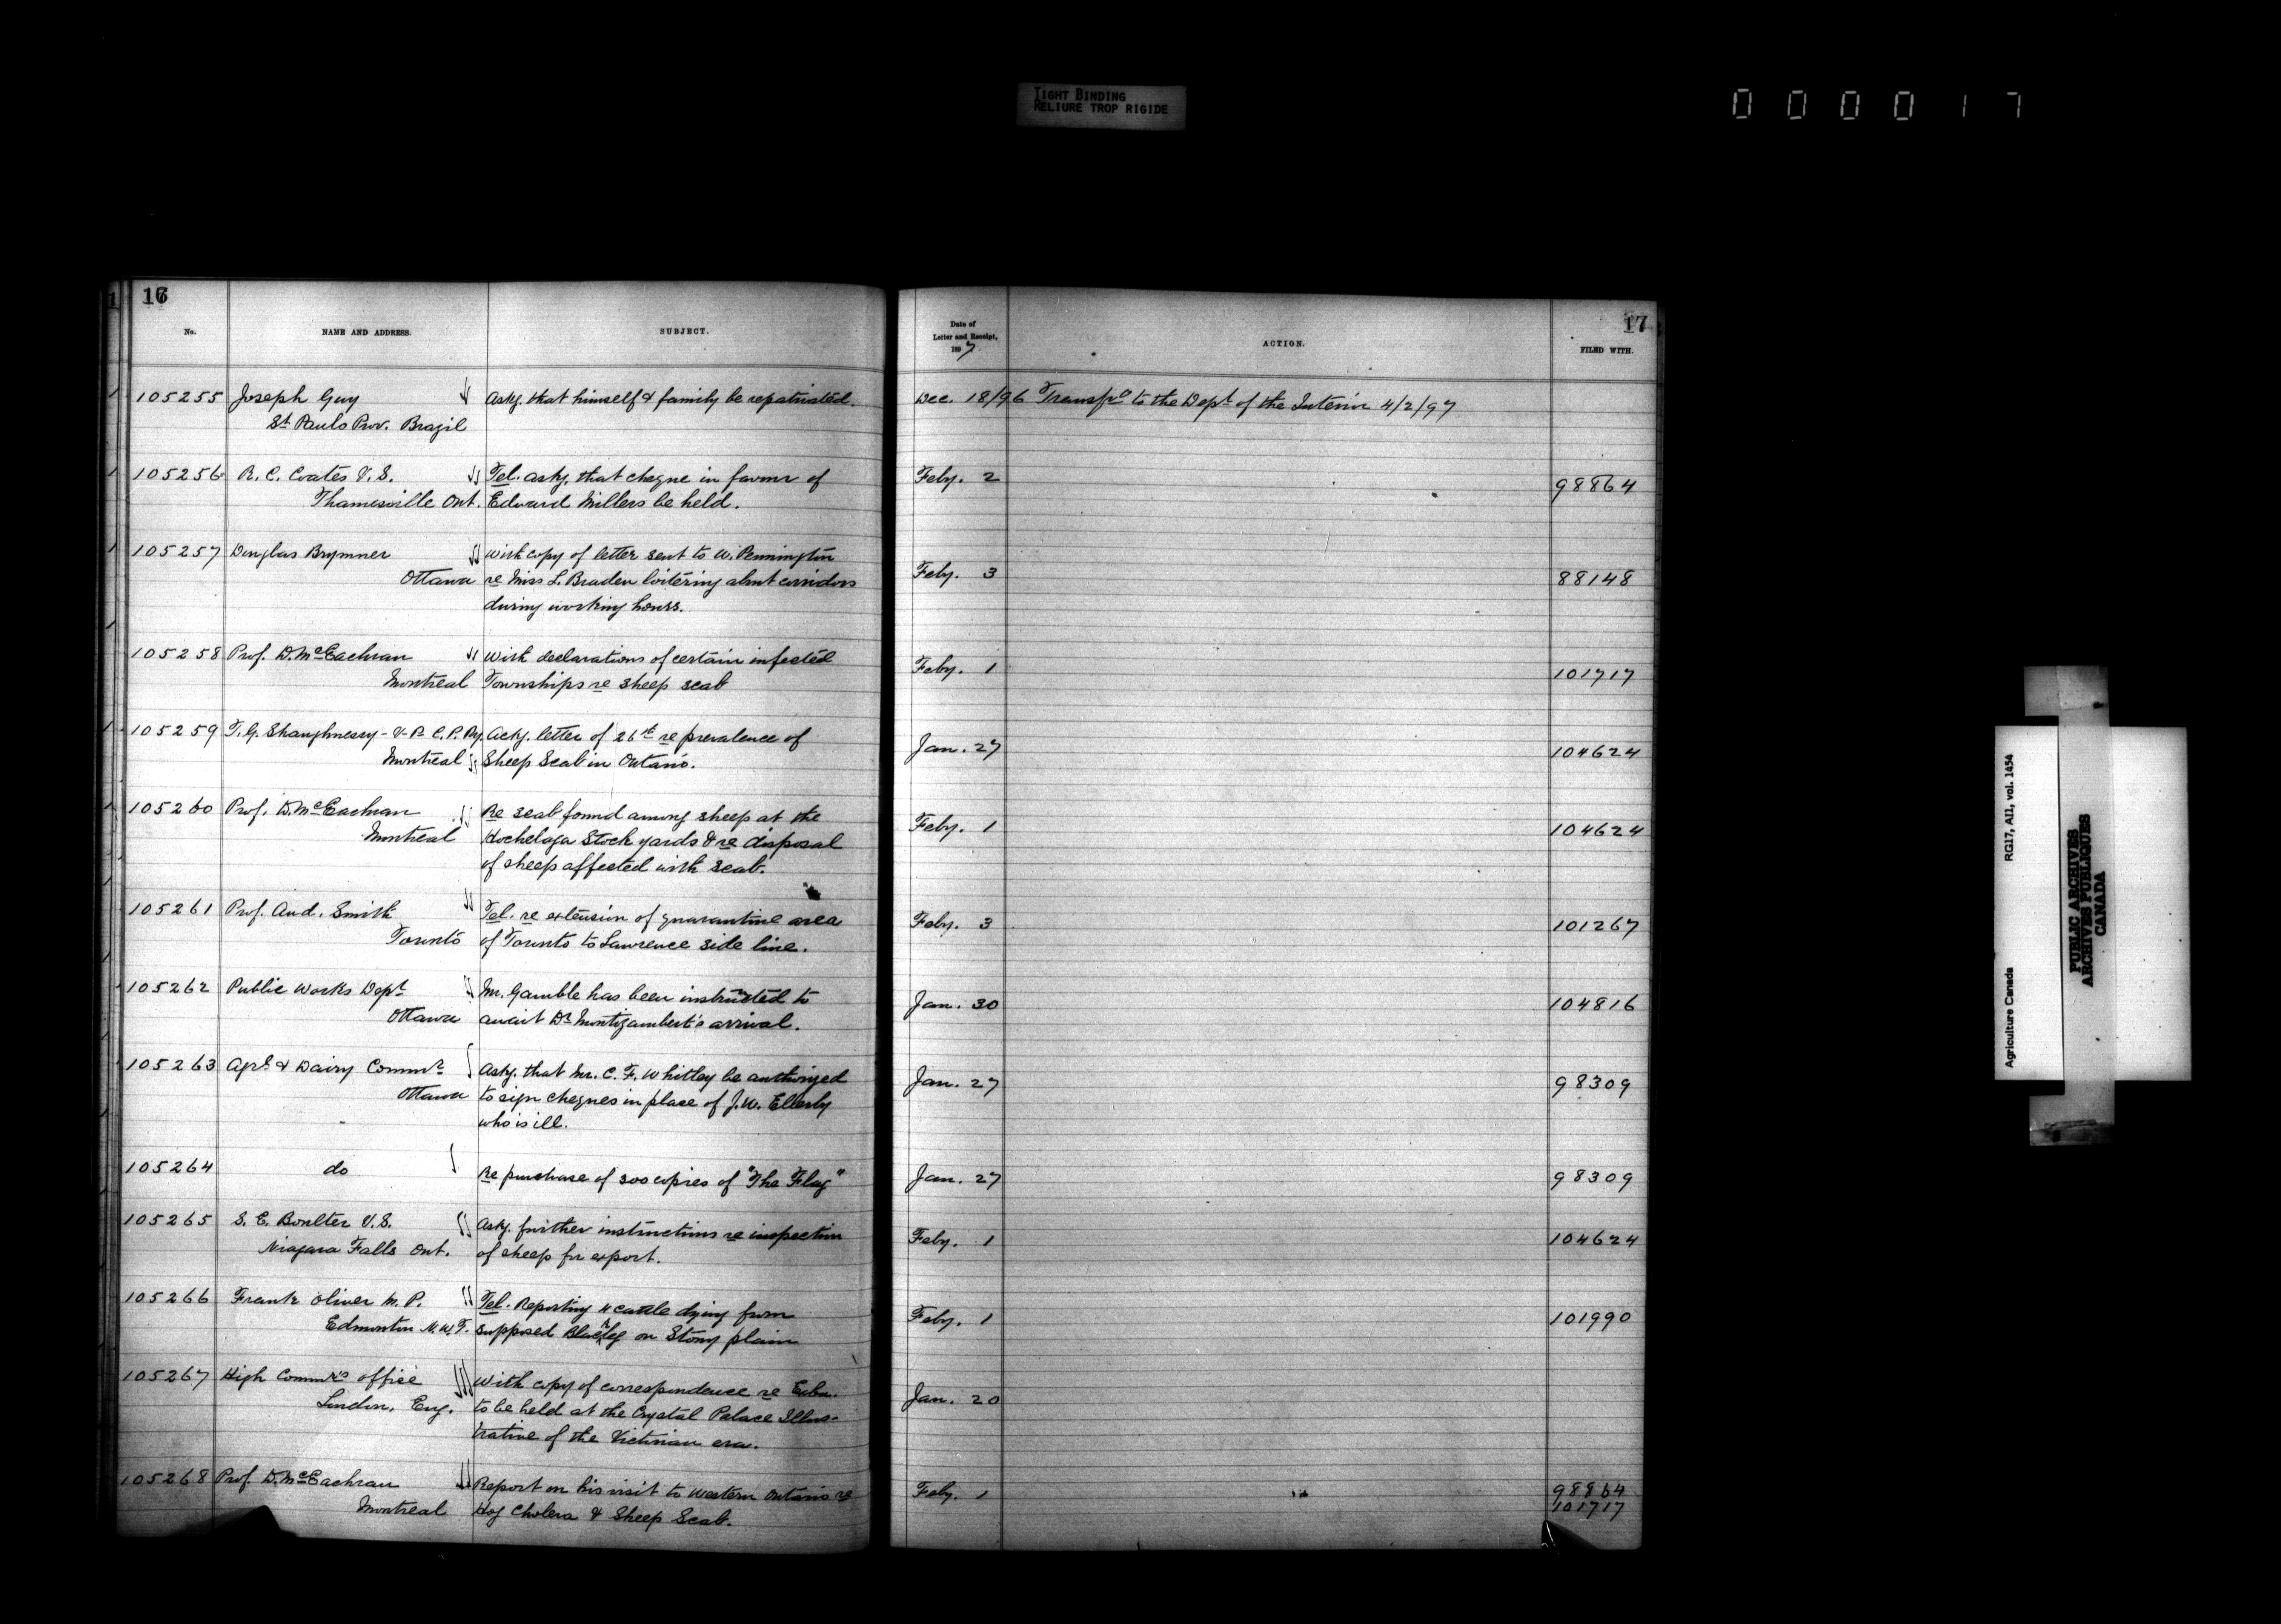 TIGHT BINDING
RELIURE TROP RIGIDE
000017
16
No.
NAME AND ADDRESS.
SUBJECT.
105255 Joseph Guy Askg. that himself & family be repatriated.
St Paulo Prov. Brazil
105256 R. C. Coates V.S. Tel. askg. that cheque in favour of
Thamesville Ont. Edward Millers be held.
105257 Douglas Brymner With copy of letter sent to W. Pennington
Ottawa re Miss L. Braden loitering about corridors
during working hours.
105258 Prof. D. McEachran With declarations of certain infected
Montreal Townships re sheep scab
105259 T. G. Shaughnessy - V-P. C.P.Ry. Ackg. letter of 26th re prevalence of
Montreal Sheep Scab in Ontario.
105260 Prof. D. McEachran Re scab found among sheep at the
Montreal Hochelaga Stock yards & re disposal
of sheep affected with scab.
105261 Prof. And. Smith Tel. re extension of quarantine area
Toronto of Toronto to Lawrence side line.
105262 Public Works Dept Mr. Gamble has been instructed to
Ottawa await Dr Montizambert's arrival.
105263 Agrl & Dairy Commr Askg. that Mr. C. F. Whitley be authorized
Ottawa to sign cheques in place of J. W. Ellerby
who is ill.
105264 do Re purchase of 300 copies of "The Flag"
105265 S. E. Boulter V.S. Askg. further instructions re inspection
Niagara Falls Ont. of sheep for export.
105266 Frank Oliver M.P. Tel. Reporting 4 cattle dying from
Edmonton N.W.T. supposed Blackleg on Stony plain
105267 High Commr's office With copy of correspondence re Exbn.
London, Eng. to be held at the Crystal Palace Illus-
trative of the Victorian era.
105268 Prof D. McEachran Report on his visit to Western Ontario re
Montreal Hog Cholera & Sheep Scab.
17
Date of
Letter and Receipt,
1897
ACTION.
FILED WITH.
Dec. 18/96 Transfd to the Dept of the Interior 4/2/97
Feby. 2 98864
Feby. 3 88148
Feby. 1 101717
Jan. 27 104624
Feby. 1 104624
Feby. 3 101267
Jan. 30 104816
Jan. 27 98309
Jan. 27 98309
Feby. 1 104624
Feby. 1 101990
Jan. 20
Feby. 1 98864
101717
Agriculture Canada RG17, AII, vol. 1454
PUBLIC ARCHIVES
ARCHIVES PUBLIQUES
CANADA